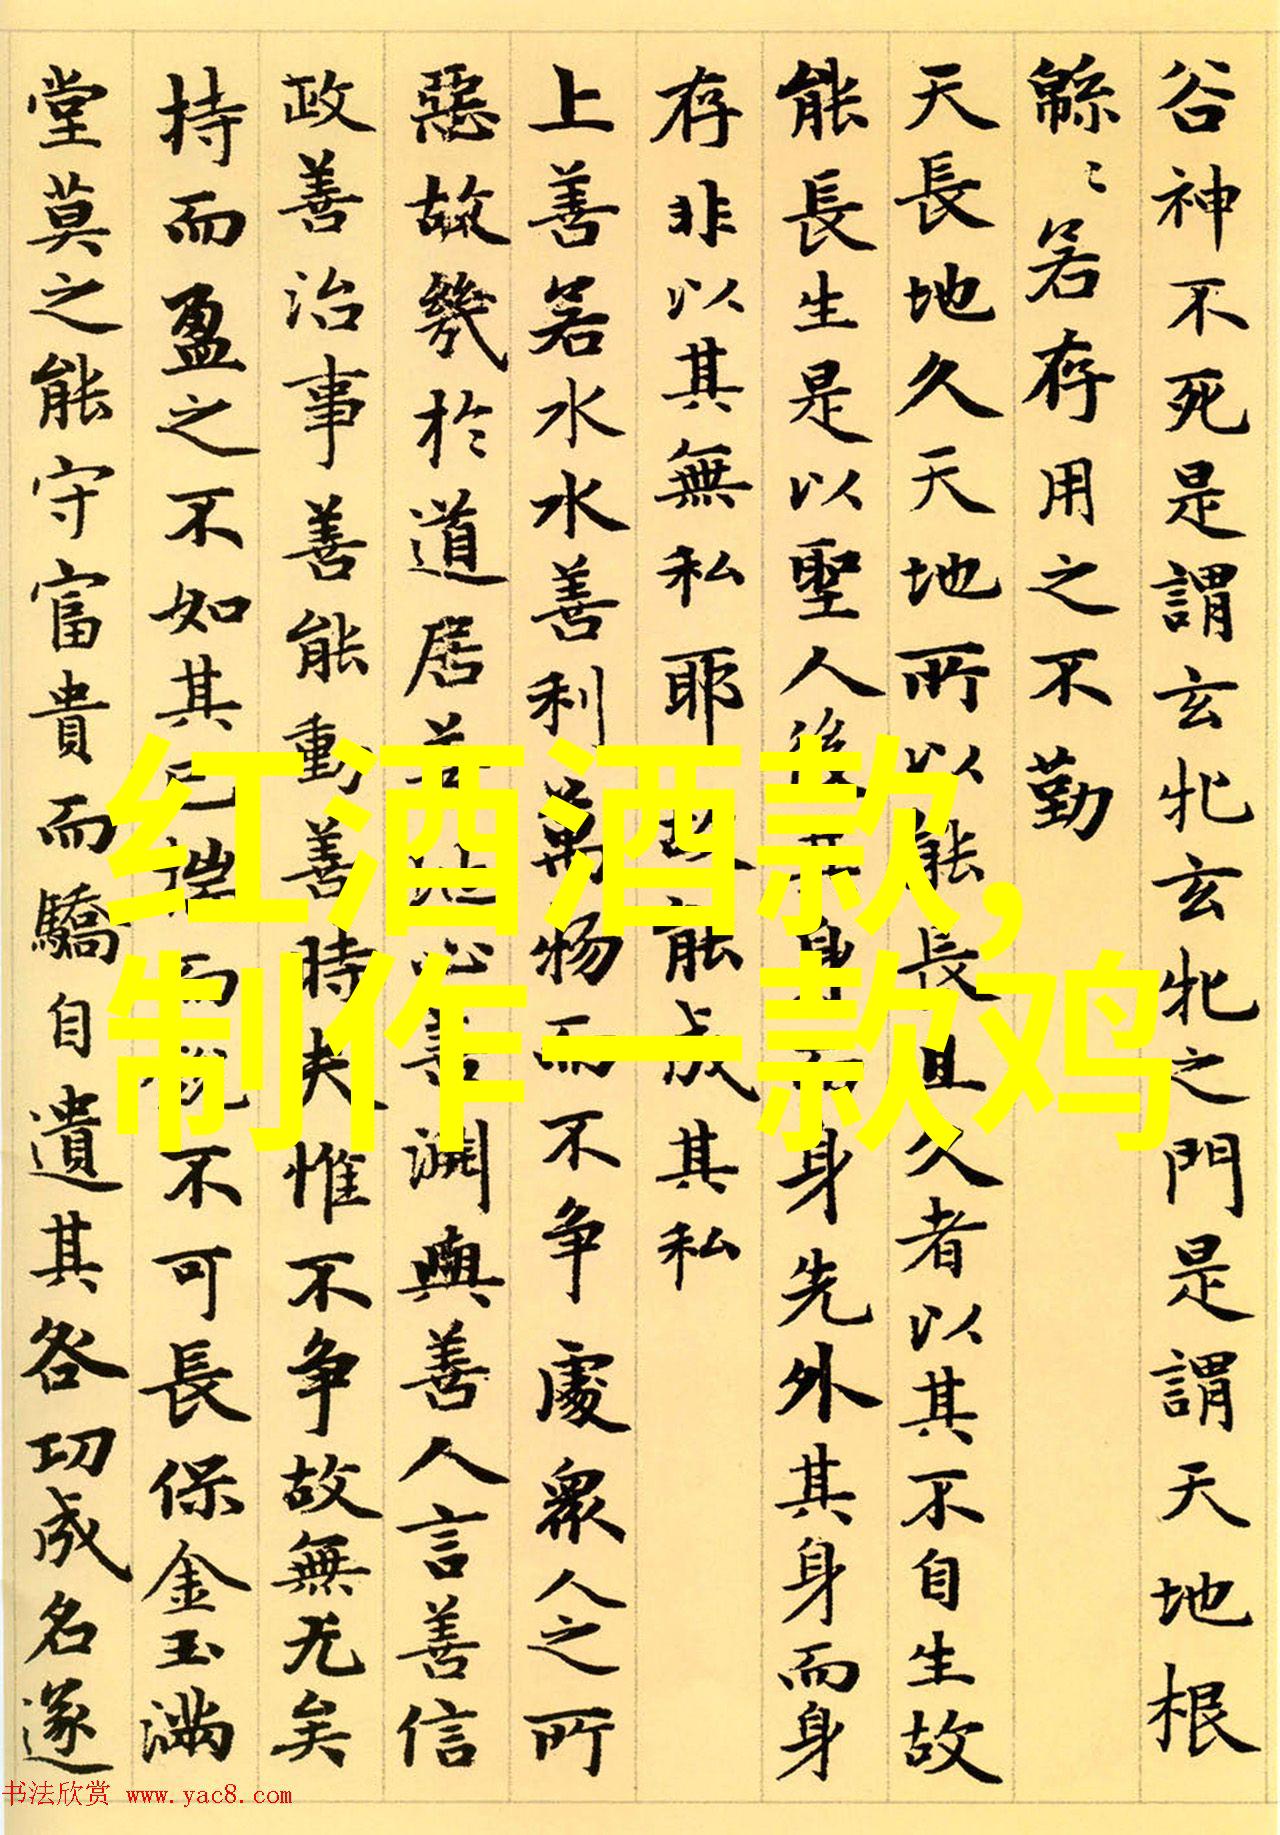 谷神不死是謂玄牝玄牝之門是謂天地根
緜〻若存用之不勤
天長地久天地所以能長且久者以其不自生故
能長生是以聖人後其身而身先外其身而身
存非以其無私耶故能成其私
上善若水水善利萬物而不争處衆人之所
惡故幾於道居善地心善淵與善人言善信
政善治事善能動善時夫惟不争故無尤矣
持而盈之不如其已揣而銳不可長保金玉滿
堂莫之能守富貴而驕自遺其咎功成名遂
红酒酒款,
制作一款鸡
书法欣赏 www.yac8.com